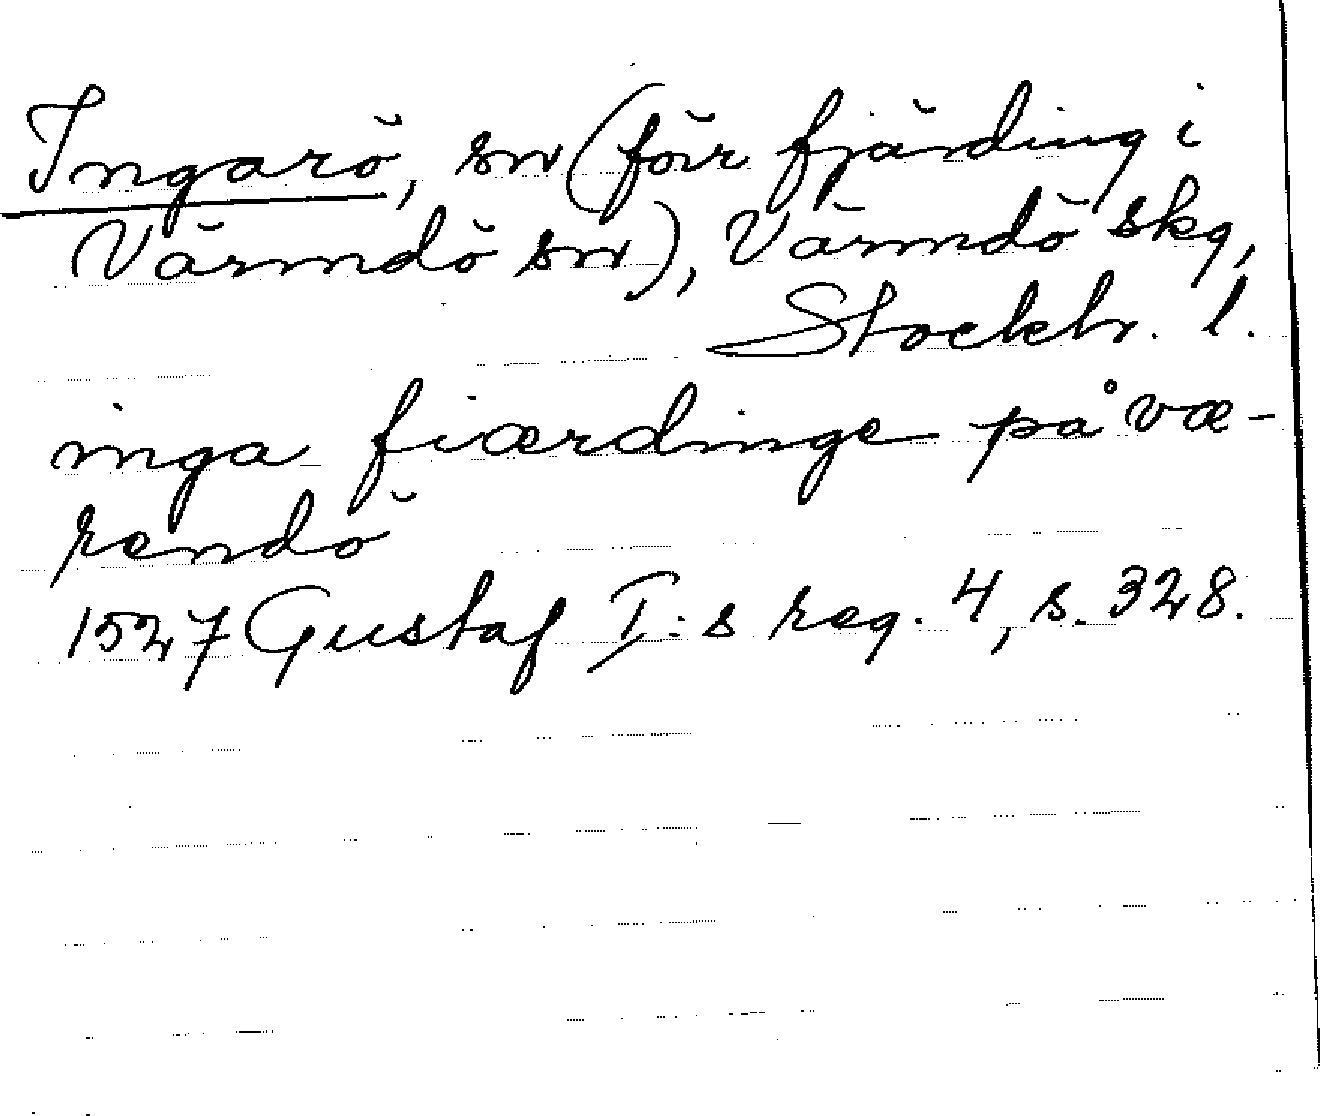 Ingarö, sn (förr fjärding i
Värmdö sn), Värmdö skg,
Stockh. l.
inga fiærdinge på væ-
rendö
1527 Gustaf I:s reg. 4, s. 328.